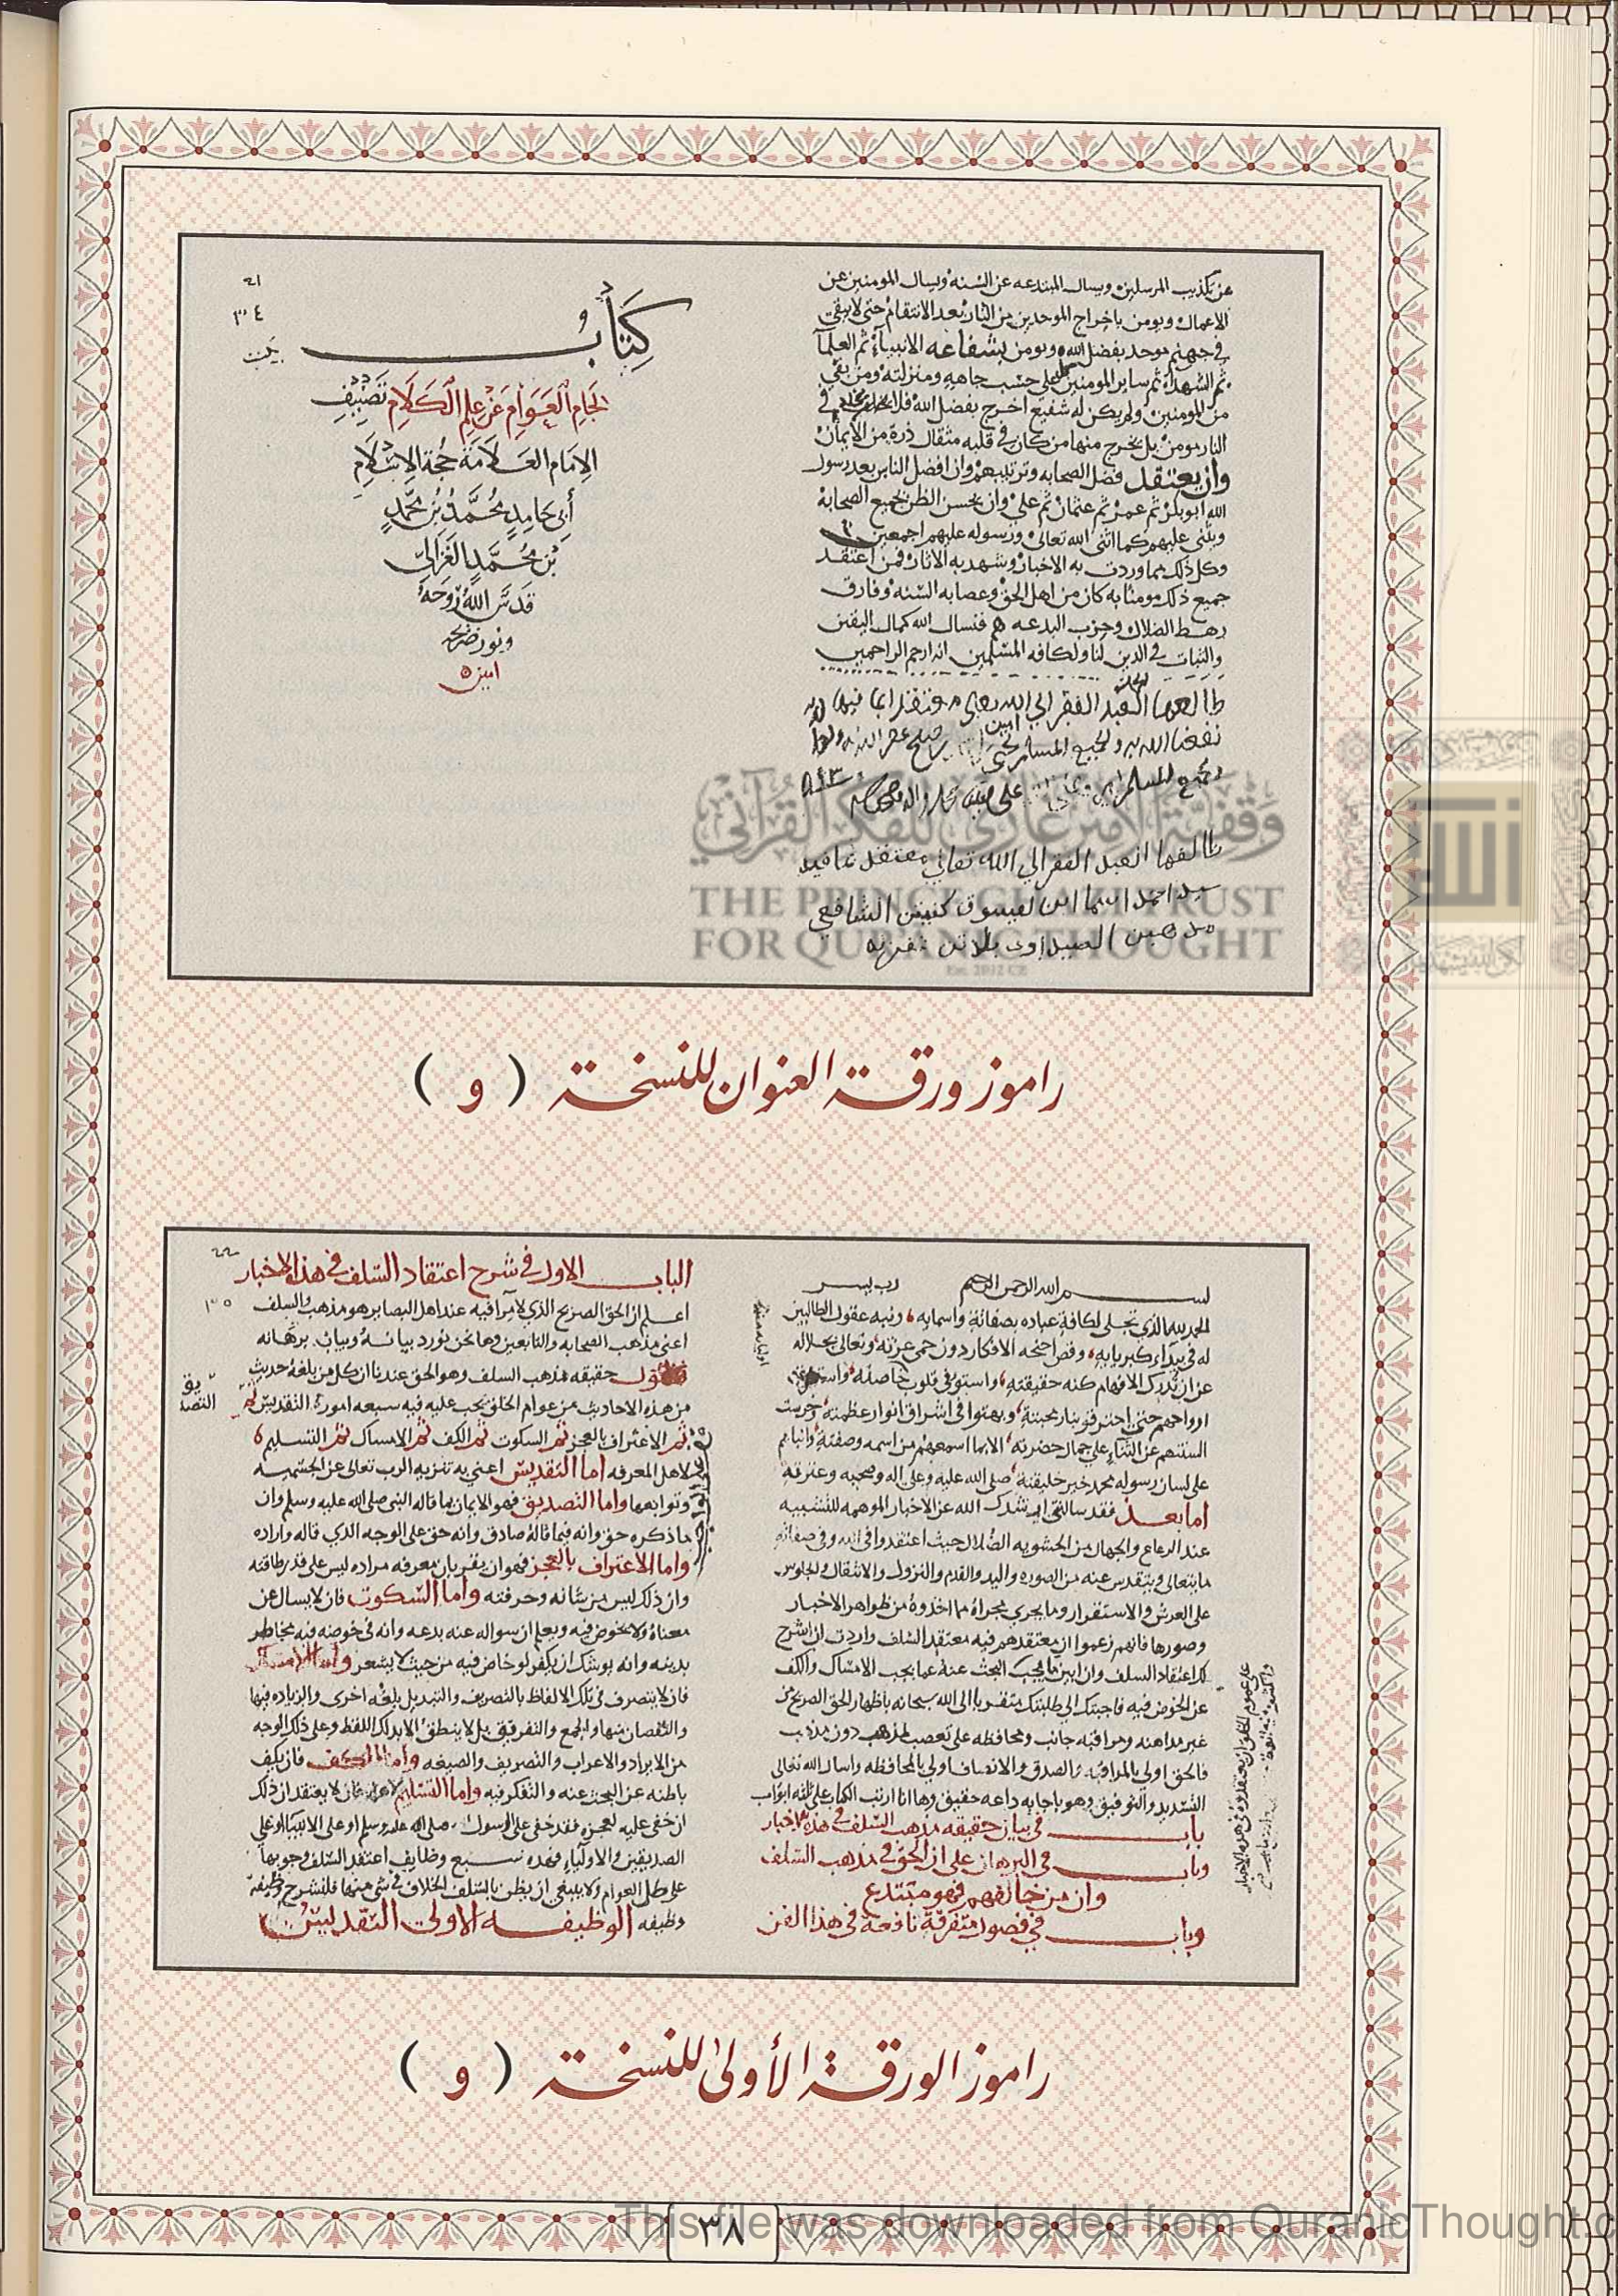 عن تكذيب المرسلين ويسال المبتدعه عن السنه ويسال المومنين عن
الاعمال ويومن باخراج الموحدين من النار بعد الانتقام حتى لا يبقى
في جهنم موحد بفضل الله ويومن بشفاعه الانبيآء ثم العلمآ
ثم الشهدآء ثم ساير المومنين على حسب جاهه ومنزلته ومن بقي
من المومنين ولم يكن له شفيع اخرج بفضل الله فلا يخلد في
النار مومن بل يخرج منها من كان في قلبه مثقال ذرة من الايمان
وان يعتقد فضل الصحابه وترتيبهم وان افضل الناس بعد رسول
الله ابو بكر ثم عمر ثم عثمان ثم علي وان يحسن الظن بجميع الصحابة
ويثني عليهم كما اثنى الله تعالى ورسوله عليهم اجمعين
وكل ذلك مما وردت به الاخبار وشهد به الاثار فمن اعتقد
جميع ذلك مومنا به كان من اهل الحق وعصابه السنه وفارق
رهط الضلال وحزب البدعه فنسال الله كمال اليقين
والثبات في الدين لنا ولكافه المسلمين انه ارحم الراحمين
طالعها العبد الفقير الى الله
نفعنا الله به ولجميع المسلمين
طالعها العبد الفقير الى الله تعالى معتقد ما فيه
سيد احمد
الشافعي
٢١
٣٤
كتاب
الجام العوام عن علم الكلام تصنيف
الامام العلامة حجة الاسلام
أبي حامد محمد بن محمد
بن محمد الغزالي
قدس الله روحه
ونور ضريحه
امين
وقفية الأمير غازي للفكر القرآني
THE PRINCE GHAZI TRUST
FOR QUR'ANIC THOUGHT
Est. 2012 CE
راموز ورقة العنوان للنسخة ( و )
بسم الله الرحمن الرحيم رب يسر
الحمد لله الذي تجلى لكافة عباده بصفاته واسمايه، وتيه عقول الطالبين
له في بيداء كبريايه، وقص اجنحه الافكار دون حمى عزته وتعالى بجلاله
عن ان تدرك الافهام كنه حقيقته، واستوفى قلوب خاصته
ارواحهم حتى احترقو بنار محبته، وبهتوا في اشراق انوار عظمته وخرست
السنتهم عن الثناء على جمال حضرته، الا بما اسمعهم من اسمه وصفته وانباهم
على لسان رسوله محمد خير خليقته، صلى الله عليه وعلى اله وصحبه وعترته
اما بعد فقد سالتني ارشدك الله عن الاخبار الموهمه للتشبيه
عند الرعاع والجهال من الحشويه الضلال حيث اعتقدوا في الله وفي صفاته
ما يتعالى ويتقدس عنه من الصوره واليد والقدم والنزول والانتقال والجلوس
على العرش والاستقرار وما يجري مجراه مما اخذوه من ظواهر الاخبار
وصورها فانهم زعموا ان معتقدهم فيه معتقد السلف واردت ان اشرح
لك اعتقاد السلف وان ابين ما يجب البحث عنه عما يجب الامساك والكف
عن الخوض فيه فاجبتك الى طلبتك متقربا الى الله سبحانه باظهار الحق الصريح من
غير مداهنه ومراقبه جانب ومحافظه على تعصب لمذهب دون مذهب
فالحق اولى بالمراقبه والصدق والانصاف اولى بالمحافظه واسال الله تعالى
التسديد والتوفيق وهو باجابه داعيه حقيق وها انا ارتب الكتاب على ثلثه ابواب
باب في بيان حقيقه مذهب السلف في هذه الاخبار
وباب في البرهان على ان الحق في مذهب السلف
وان من خالفهم فهو مبتدع
وباب في فصول متفرقة نافعة في هذا الفن
٢٢
١٣٥
الباب الاول في شرح اعتقاد السلف في هذه الاخبار
اعلم ان الحق الصريح الذي لا مرا فيه عند اهل البصاير هو مذهب السلف
اعني مذهب الصحابه والتابعين وها نحن نورد بيانه وبيان برهانه
فنقول حقيقه مذهب السلف وهو الحق عندنا ان كل من بلغه حديث
من هذه الاحاديث من عوام الخلق يجب عليه فيه سبعه امور التقديس ثم
ثم الاعتراف بالعجز ثم السكوت ثم الكف ثم الامساك ثم التسليم
لاهل المعرفه اما التقديس اعني به تنزيه الرب تعالى عن الجسميه
وتوابعها واما التصديق فهو الايمان بما قاله النبي صلى الله عليه وسلم وان
ما ذكره حق وانه فيما قاله صادق وانه حق على الوجه الذي قاله واراده
واما الاعتراف بالعجز فهو ان يقر بان معرفه مراده ليس على قدر طاقته
وان ذلك ليس من شانه وحرفته واما السكوت فان لا يسال عن
معناه ولا يخوض فيه ويعلم ان سواله عنه بدعه وانه في خوضه فيه مخاطر
بدينه وانه يوشك ان يكفر لو خاض فيه من حيث لا يشعر واما الامساك
فان لا يتصرف في تلك الالفاظ بالتصريف والتبديل بلغه اخرى والزياده فيها
والنقصان منها والجمع والتفريق بل لا ينطق الا بذلك اللفظ وعلى ذلك الوجه
من الايراد والاعراب والتصريف والصيغه واما الكف فان يكف
باطنه عن البحث عنه والتفكر فيه واما التسليم لاهله فان لا يعتقد ان ذلك
ان خفى عليه لعجزه فقد خفى على الرسول صلى الله عليه وسلم او على الانبيا او على
الصديقين والاولياء فهذه سبع وظايف اعتقد السلف وجوبها
على كل العوام ولا ينبغي ان يظن بالسلف الخلاف في شي منها فلنشرح وظيفة
وظيفه الوظيفه الاولى التقديس
راموز الورقة الأولى للنسخة ( و )
٣٨
This file was downloaded from QuranicThought.c